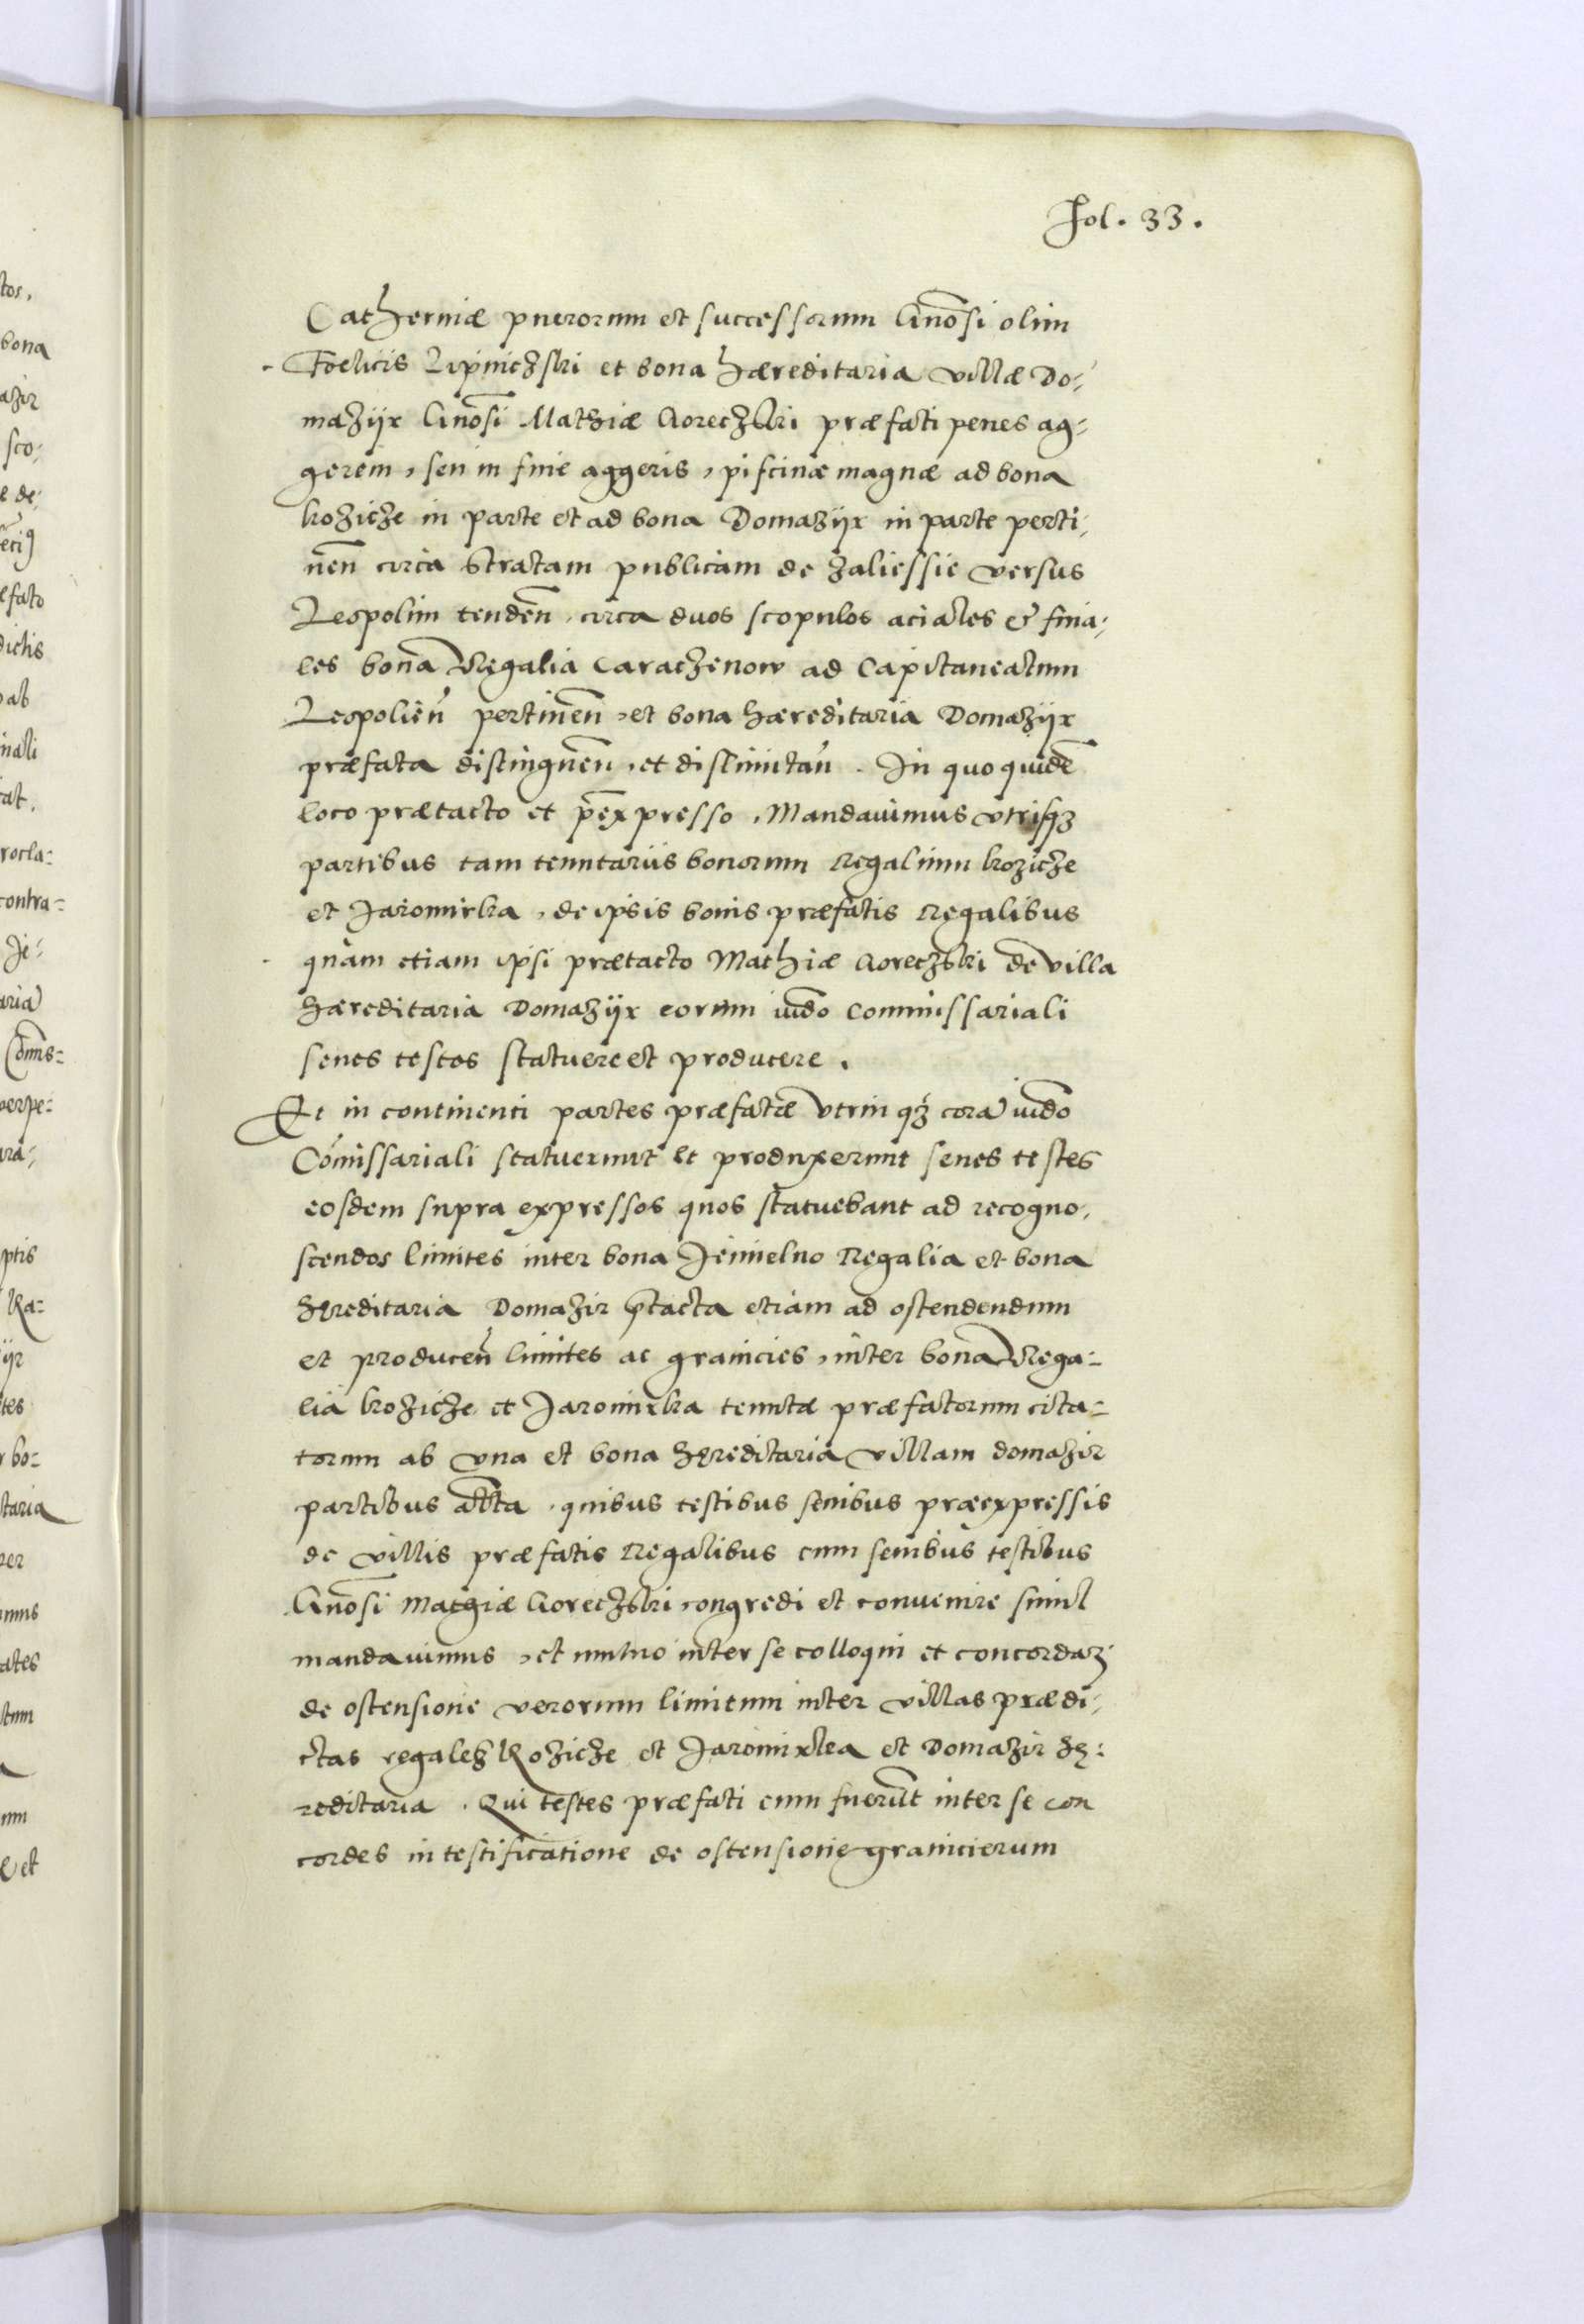 Fol. 33.
Catherinæ puerorum et successorum Gnōsi olim
Foelicis Lipniczski et bona hæreditaria villæ Do-
mazijr Gnōsi Mathiæ Goreczski præfati penes ag-
gerem, seu in fine aggeris, piscinæ magnæ ad bona
kozicze in parte et ad bona Domazijr in parte perti-
nen̄ circa stratam publicam de Zaliessie versus
Leopolim tenden̄, circa duos scopulos aciales & fina-
les bona Regalia Caraczenow ad Capitaneatum
Leopolien̄ pertinen̄, et bona hæreditaria Domazijr
præfata distinguen̄, et dislimitan̄. In quo quidē
loco prætacto et p̄expresso, Mandauimus vtrisqꝫ
partibus tam tenutariis bonorum Regalium kozicze
et Jaromirka, de ipsis bonis præfatis Regalibus
quàm etiam ipsi prætacto Mathiæ Goreczski de villa
hæreditaria Domazijr eorum iudō Commissariali
senes testes statuere et producere.
Et in continenti partes præfatæ vtrinqꝫ corā iudō
Com̄issariali statuerunt et produxerunt senes testes
eosdem supra expressos quos statuebant ad recogno-
scendos limites inter bona Jemielno Regalia et bona
hęreditaria Domazir p̄tacta etiam ad ostendendum
et producen̄ limites ac granicies, inter bona Rega-
lia kozicze et Jaromirka tenutæ præfatorum cita-
torum ab vna et bona hęreditaria villam domazir
partibus ab altā. quibus testibus senibus præexpressis
de villis præfatis Regalibus cum senibus testibus
Gnōsi Mathiæ Goreczski congredi et conuenire simul
mandauimus, et mutuo inter se colloqui et concordaꝫ
de ostensione verorum limitum inter villas prædi-
ctas regales Kozicze et Jaromirka et Domazir hę-
reditaria. Qui testes præfati cum fuerūt inter se con
cordes in testificatione de ostensione granicierum